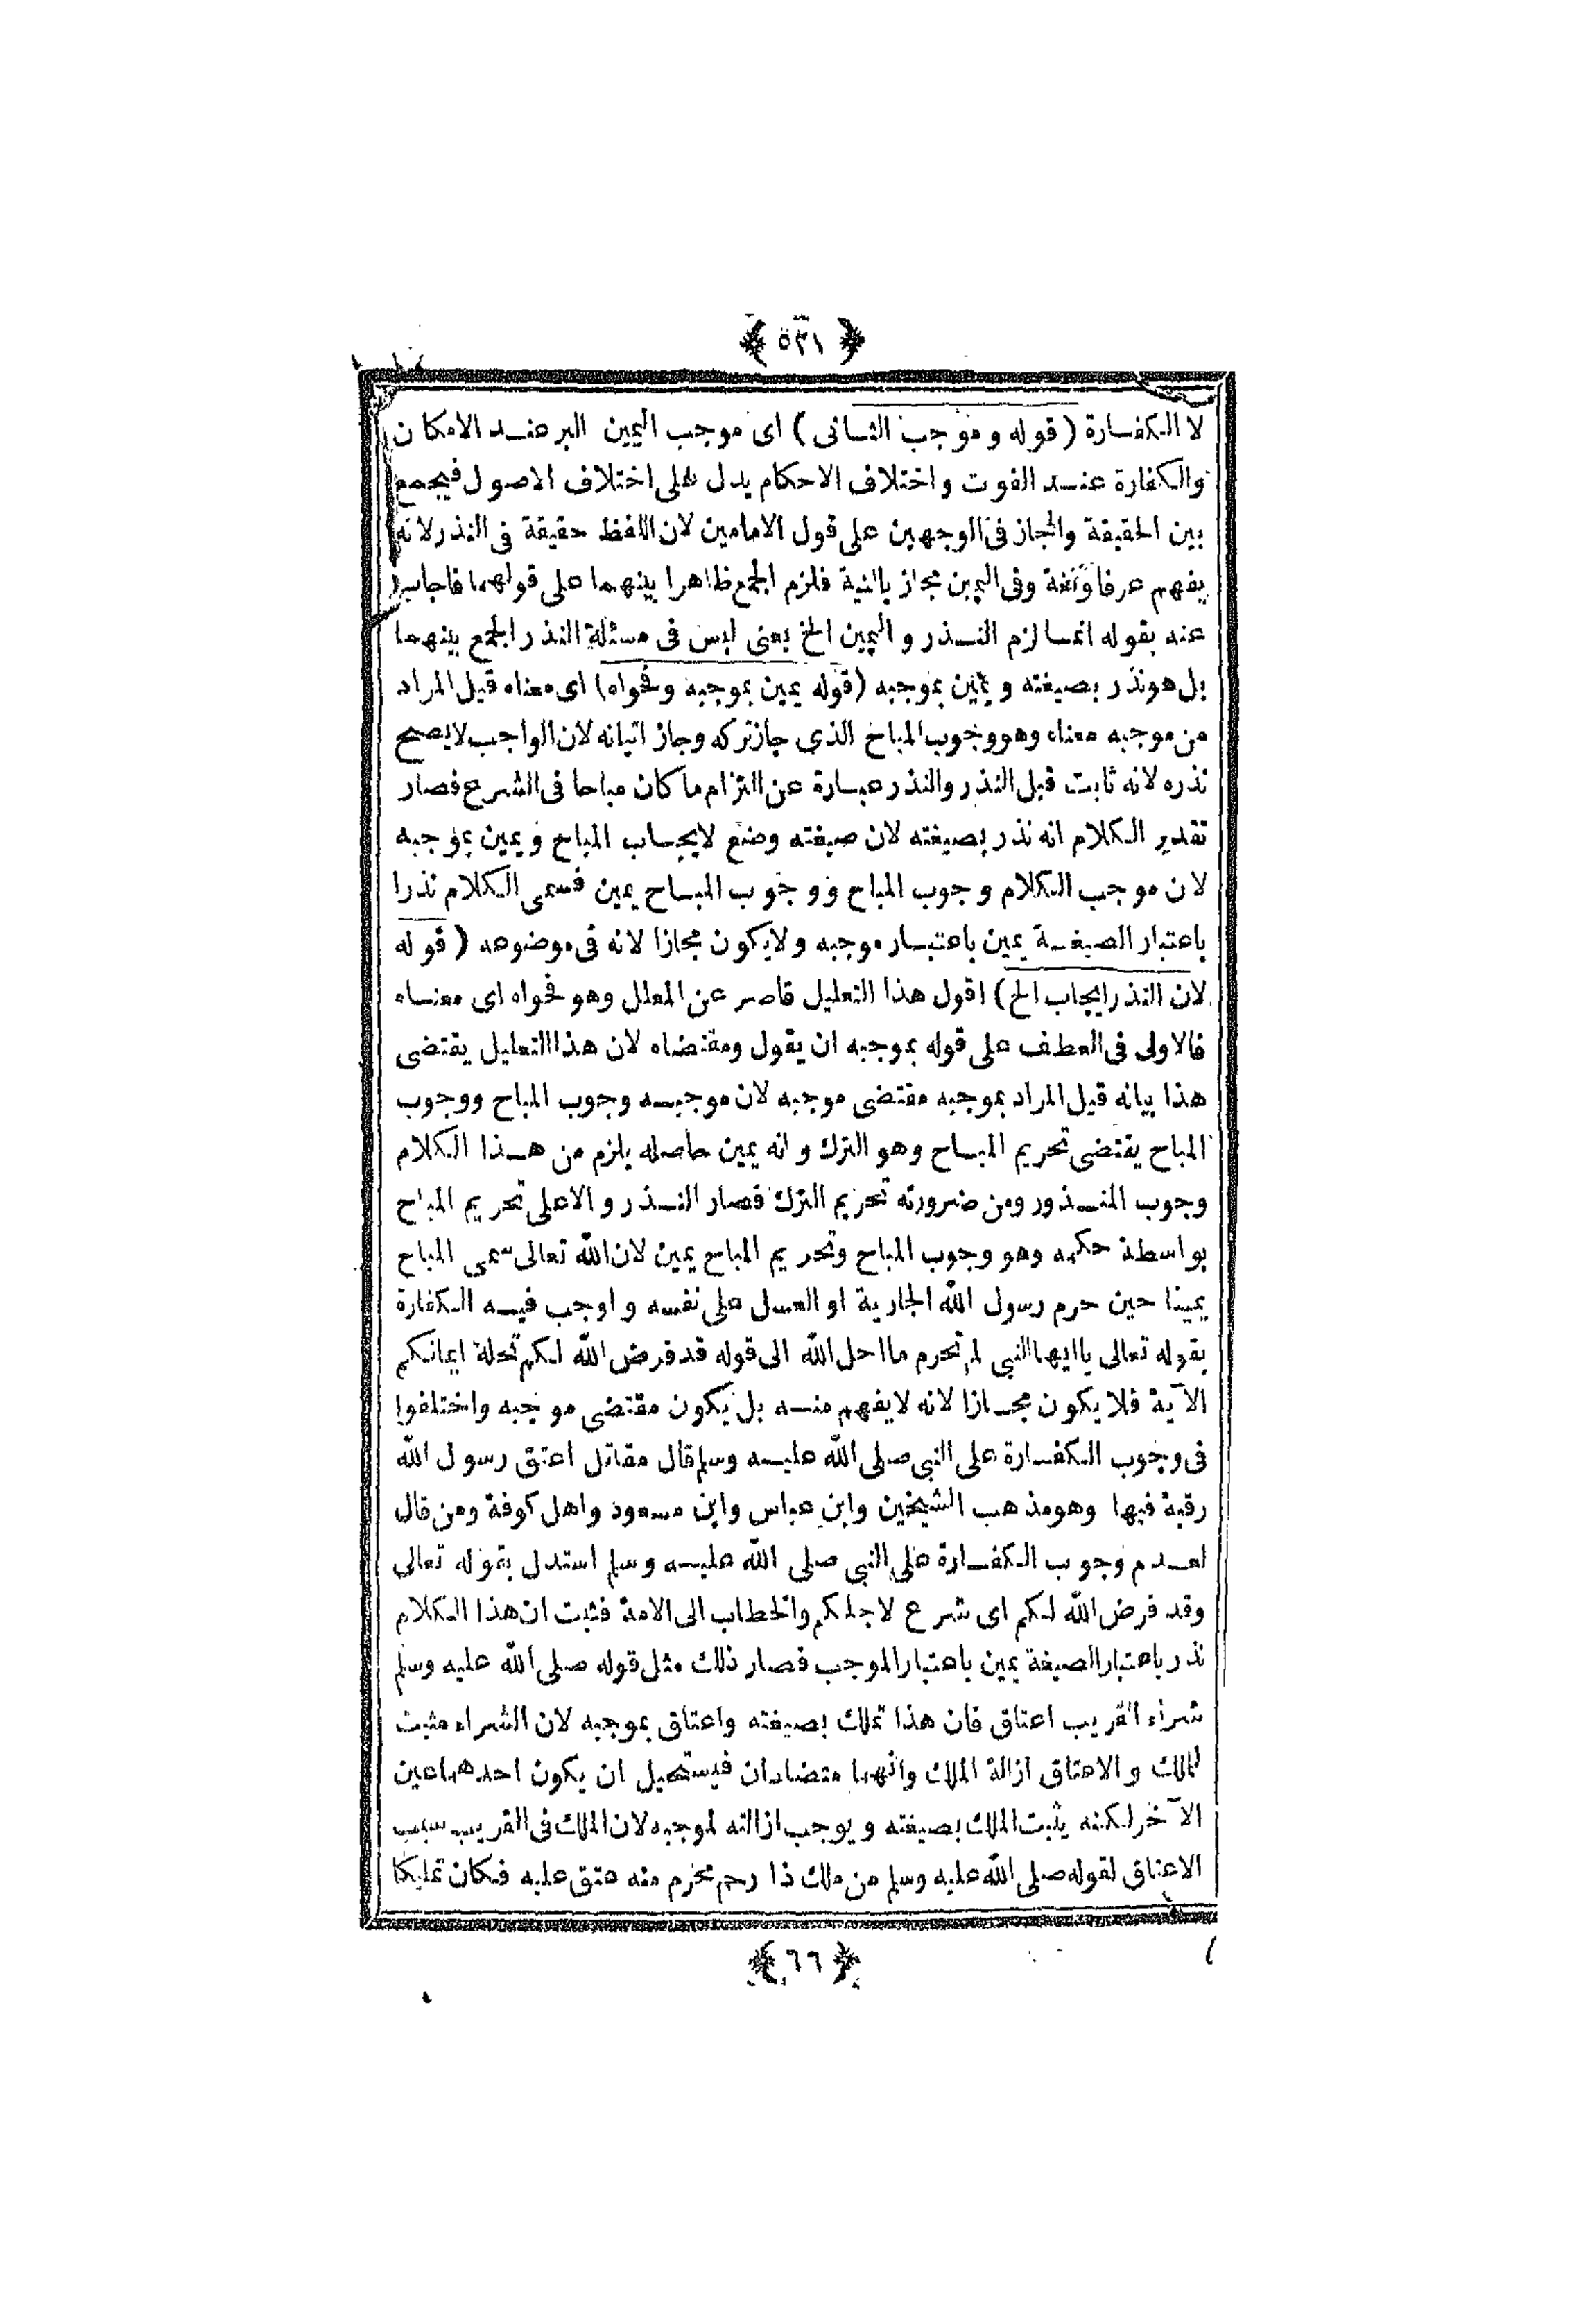 ﴿ ٥٢١ ﴾
لا الكفارة ( قوله و موجب الثانى ) اى موجب اليمين البر عند الامكان
والكفارة عند الفوت واختلاف الاحكام يدل على اختلاف الاصول فيجمع
بين الحقيقة والمجاز فى الوجهين على قول الامامين لان اللفظ حقيقة فى النذر لانه
يفهم عرفا ولغة وفى اليمين مجاز بالنية فلزم الجمع ظاهرا بينهما على قولهما فاجاب
عنه بقوله انما لزم النذر و اليمين الخ يعنى ليس فى مسئلة النذر الجمع بينهما
بل هو نذر بصيغته و يمين بموجبه (قوله يمين بموجبه وفحواه) اى معناه قيل المراد
من موجبه معناه وهو وجوب المباح الذى جاز تركه وجاز اتيانه لان الواجب لايصح
نذره لانه ثابت قبل النذر والنذر عبارة عن التزام ما كان مباحا فى الشرع فصار
تقدير الكلام انه نذر بصيغته لان صيغته وضع لايجاب المباح و يمين بموجبه
لان موجب الكلام وجوب المباح ووجوب المباح يمين فسمى الكلام نذرا
باعتبار الصيغة يمين باعتبار موجبه ولايكون مجازا لانه فى موضوعه ( قوله
لان النذر ايجاب الخ) اقول هذا التعليل قاصر عن المعلل وهو فحواه اى معناه
فالاولى فى العطف على قوله بموجبه ان يقول ومقتضاه لان هذا التعليل يقتضى
هذا بيانه قيل المراد بموجبه مقتضى موجبه لان موجبه وجوب المباح ووجوب
المباح يقتضى تحريم المباح وهو الترك وانه يمين حاصله يلزم من هذا الكلام
وجوب المنذور ومن ضرورته تحريم الترك فصار النذر و الاعلى تحريم المباح
بواسطة حكمه وهو وجوب المباح وتحريم المباح يمين لان الله تعالى سمى المباح
يمينا حين حرم رسول الله الجارية او العسل على نفسه و اوجب فيه الكفارة
بقوله تعالى ياايها النبى لم تحرم ما احل الله الى قوله قد فرض الله لكم تحلة ايمانكم
الآية فلا يكون مجازا لانه لايفهم منه بل يكون مقتضى موجبه واختلفوا
فى وجوب الكفارة على النبى صلى الله عليه وسلم قال مقاتل اعتق رسول الله
رقبة فيها وهو مذهب الشيخين وابن عباس وابن مسعود واهل كوفة ومن قال
لعدم وجوب الكفارة على النبى صلى الله عليه وسلم استدل بقوله تعالى
وقد فرض الله لكم اى شرع لاجلكم والخطاب الى الامة فثبت ان هذا الكلام
نذر باعتبار الصيغة يمين باعتبار الموجب فصار ذلك مثل قوله صلى الله عليه وسلم
شراء القريب اعتاق فان هذا تملك بصيغته واعتاق بموجبه لان الشراء مثبت
لملك و الاعتاق ازالة الملك وانهما متضادان فيستحيل ان يكون احدهما عين
الآخر لكنه يثبت الملك بصيغته و يوجب ازالته لموجبه لان الملك فى القريب سبب
الاعتاق لقوله صلى الله عليه وسلم من ملك ذا رحم محرم منه عتق عليه فكان تمليكا
﴿ ٦٦ ﴾